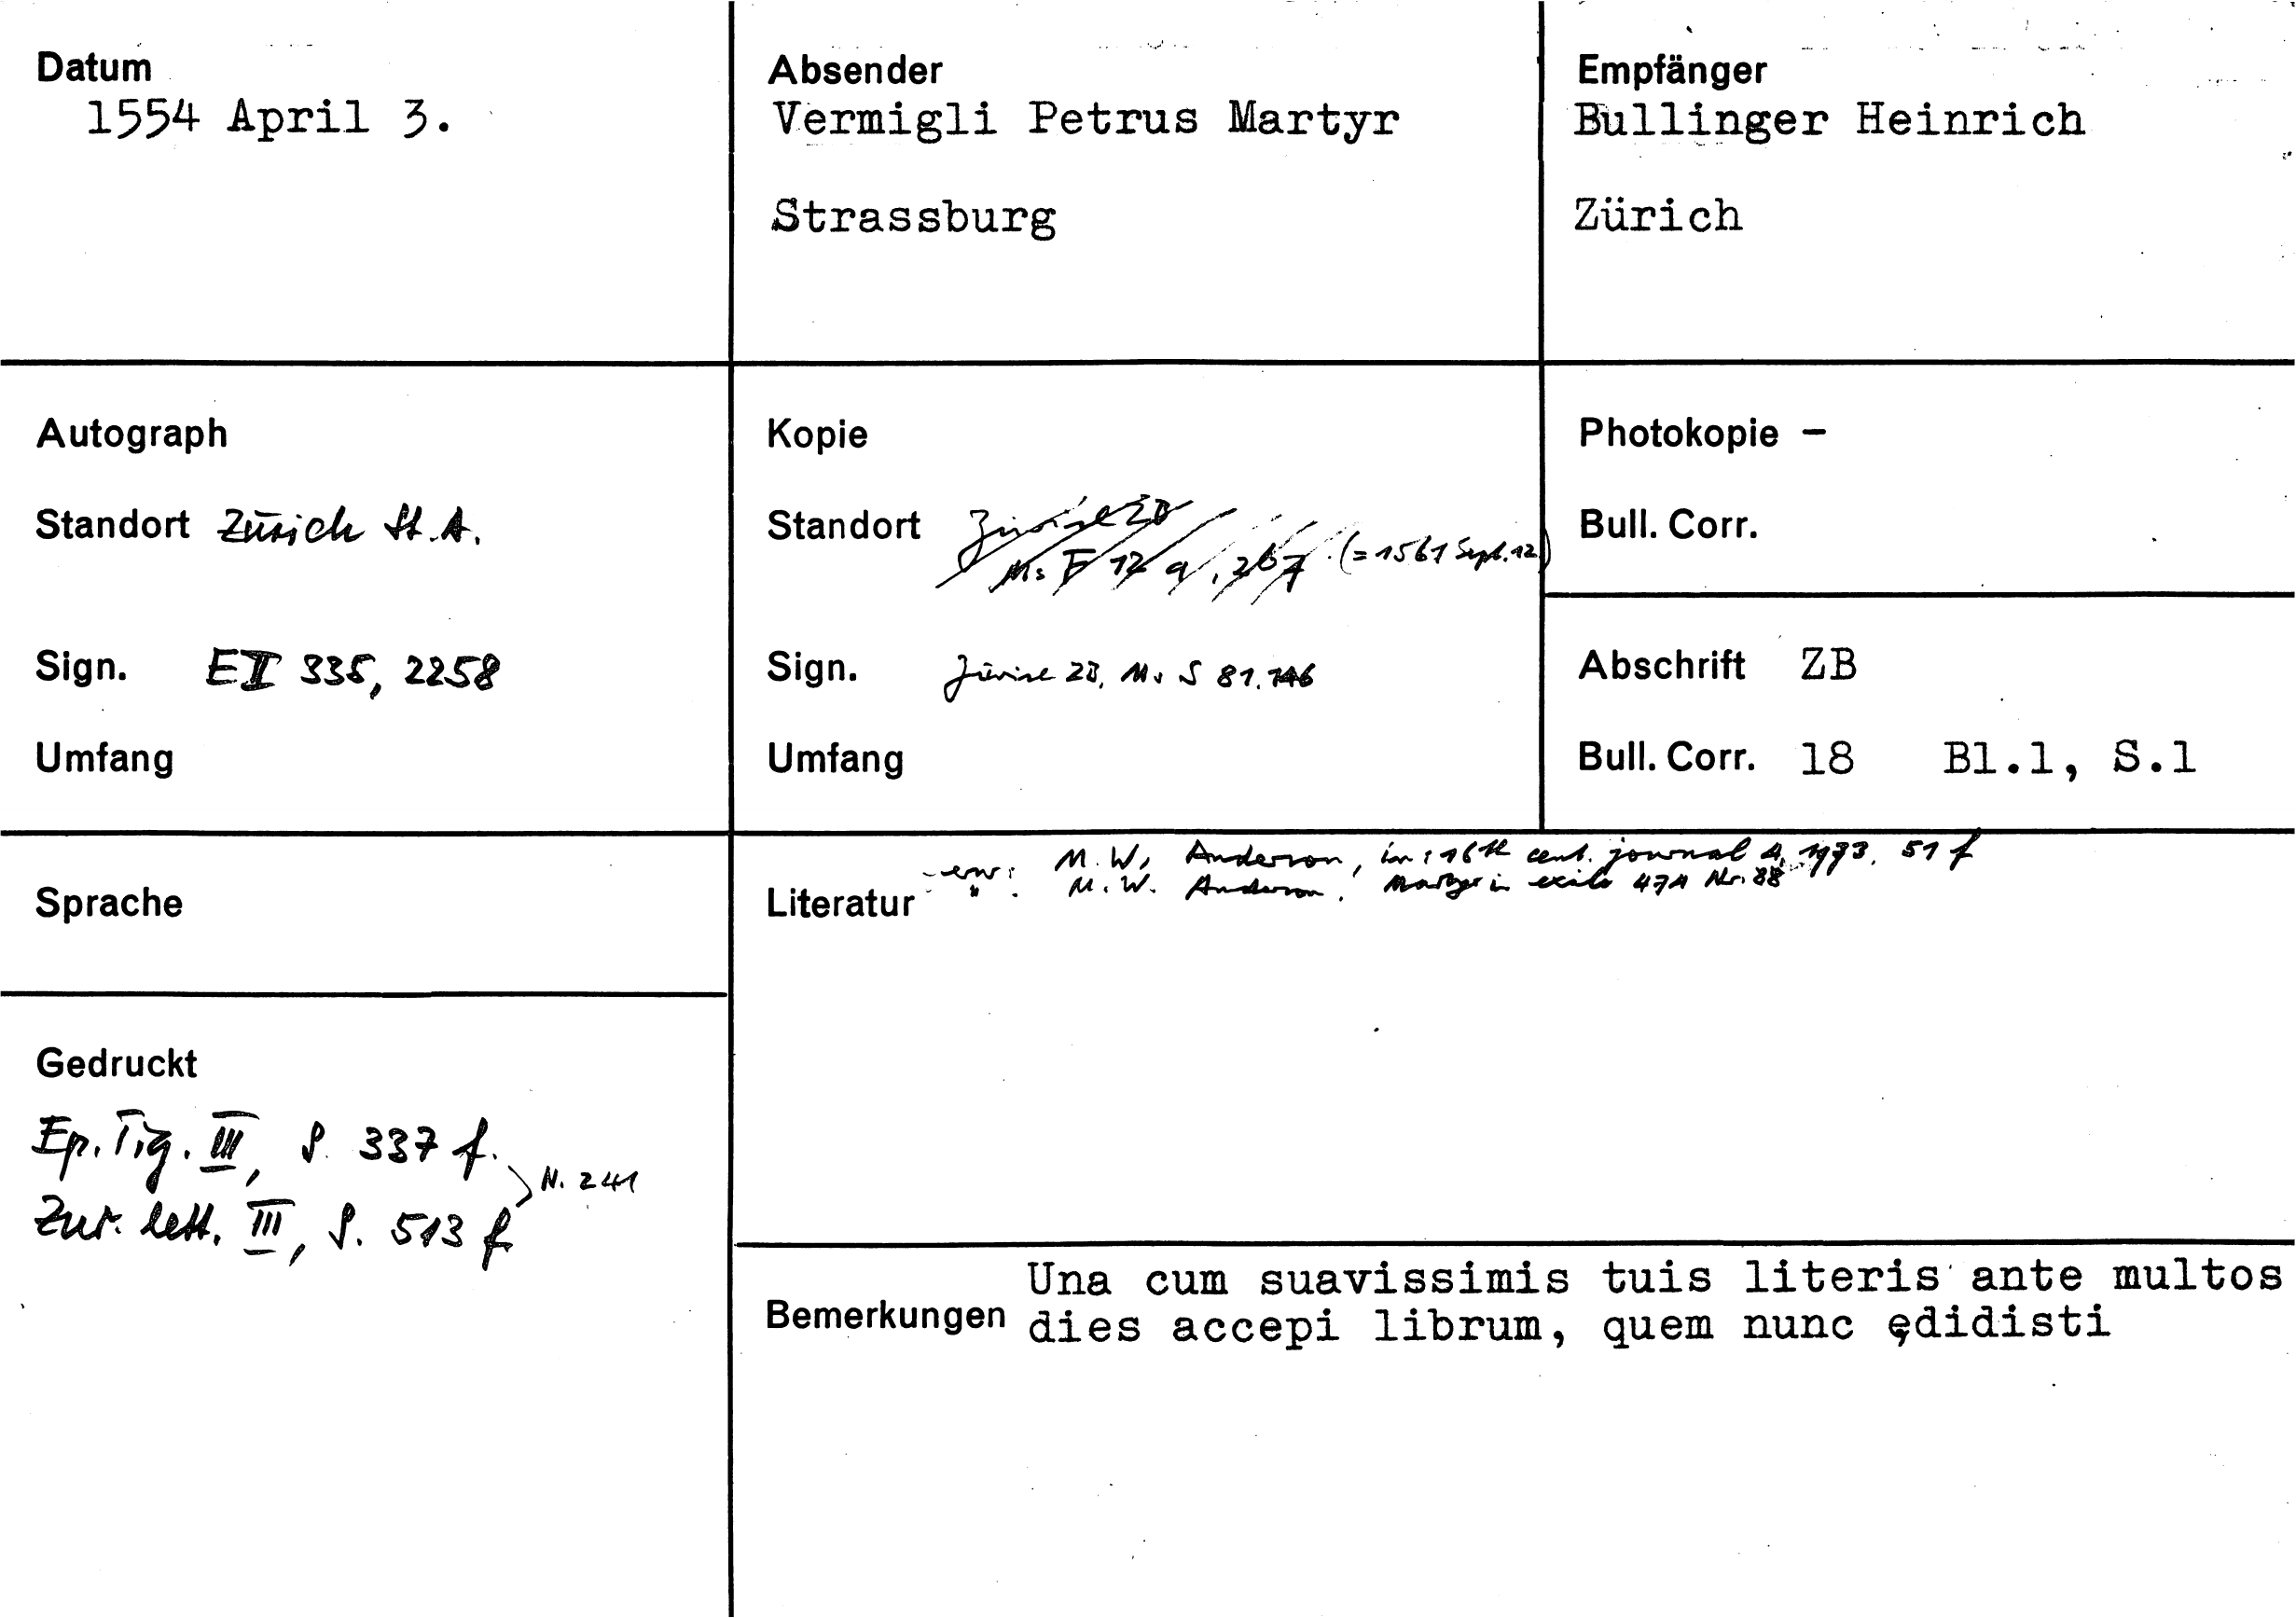 Datum
1554 April 3.
Absender
Vermigli Petrus Martyr
Strassburg
Empfänger
Bullinger Heinrich
Zürich
Autograph
Standort Zürich St.A.
Sign. E II 335, 2258
Umfang
Kopie
Standort Zürich ZB
Ms F 12 a, 267 (=1561 Sept. 12)
Sign. Zürich ZB, Ms S 81.146
Umfang
Photokopie –
Bull. Corr.
Abschrift ZB
Bull. Corr. 18 Bl.1, S.1
Sprache
Literatur
erw: M. W. Anderson, in: 16th cent. journal 4, 1973, 51 f
" : M. W. Anderson, Martyr in exile 471 Nr. 88
Gedruckt
Ep. Tig. III, S. 337 f.
N. 241
Zur. lett. III, S. 513 f
Bemerkungen
Una cum suavissimis tuis literis ante multos
dies accepi librum, quem nunc ędidisti